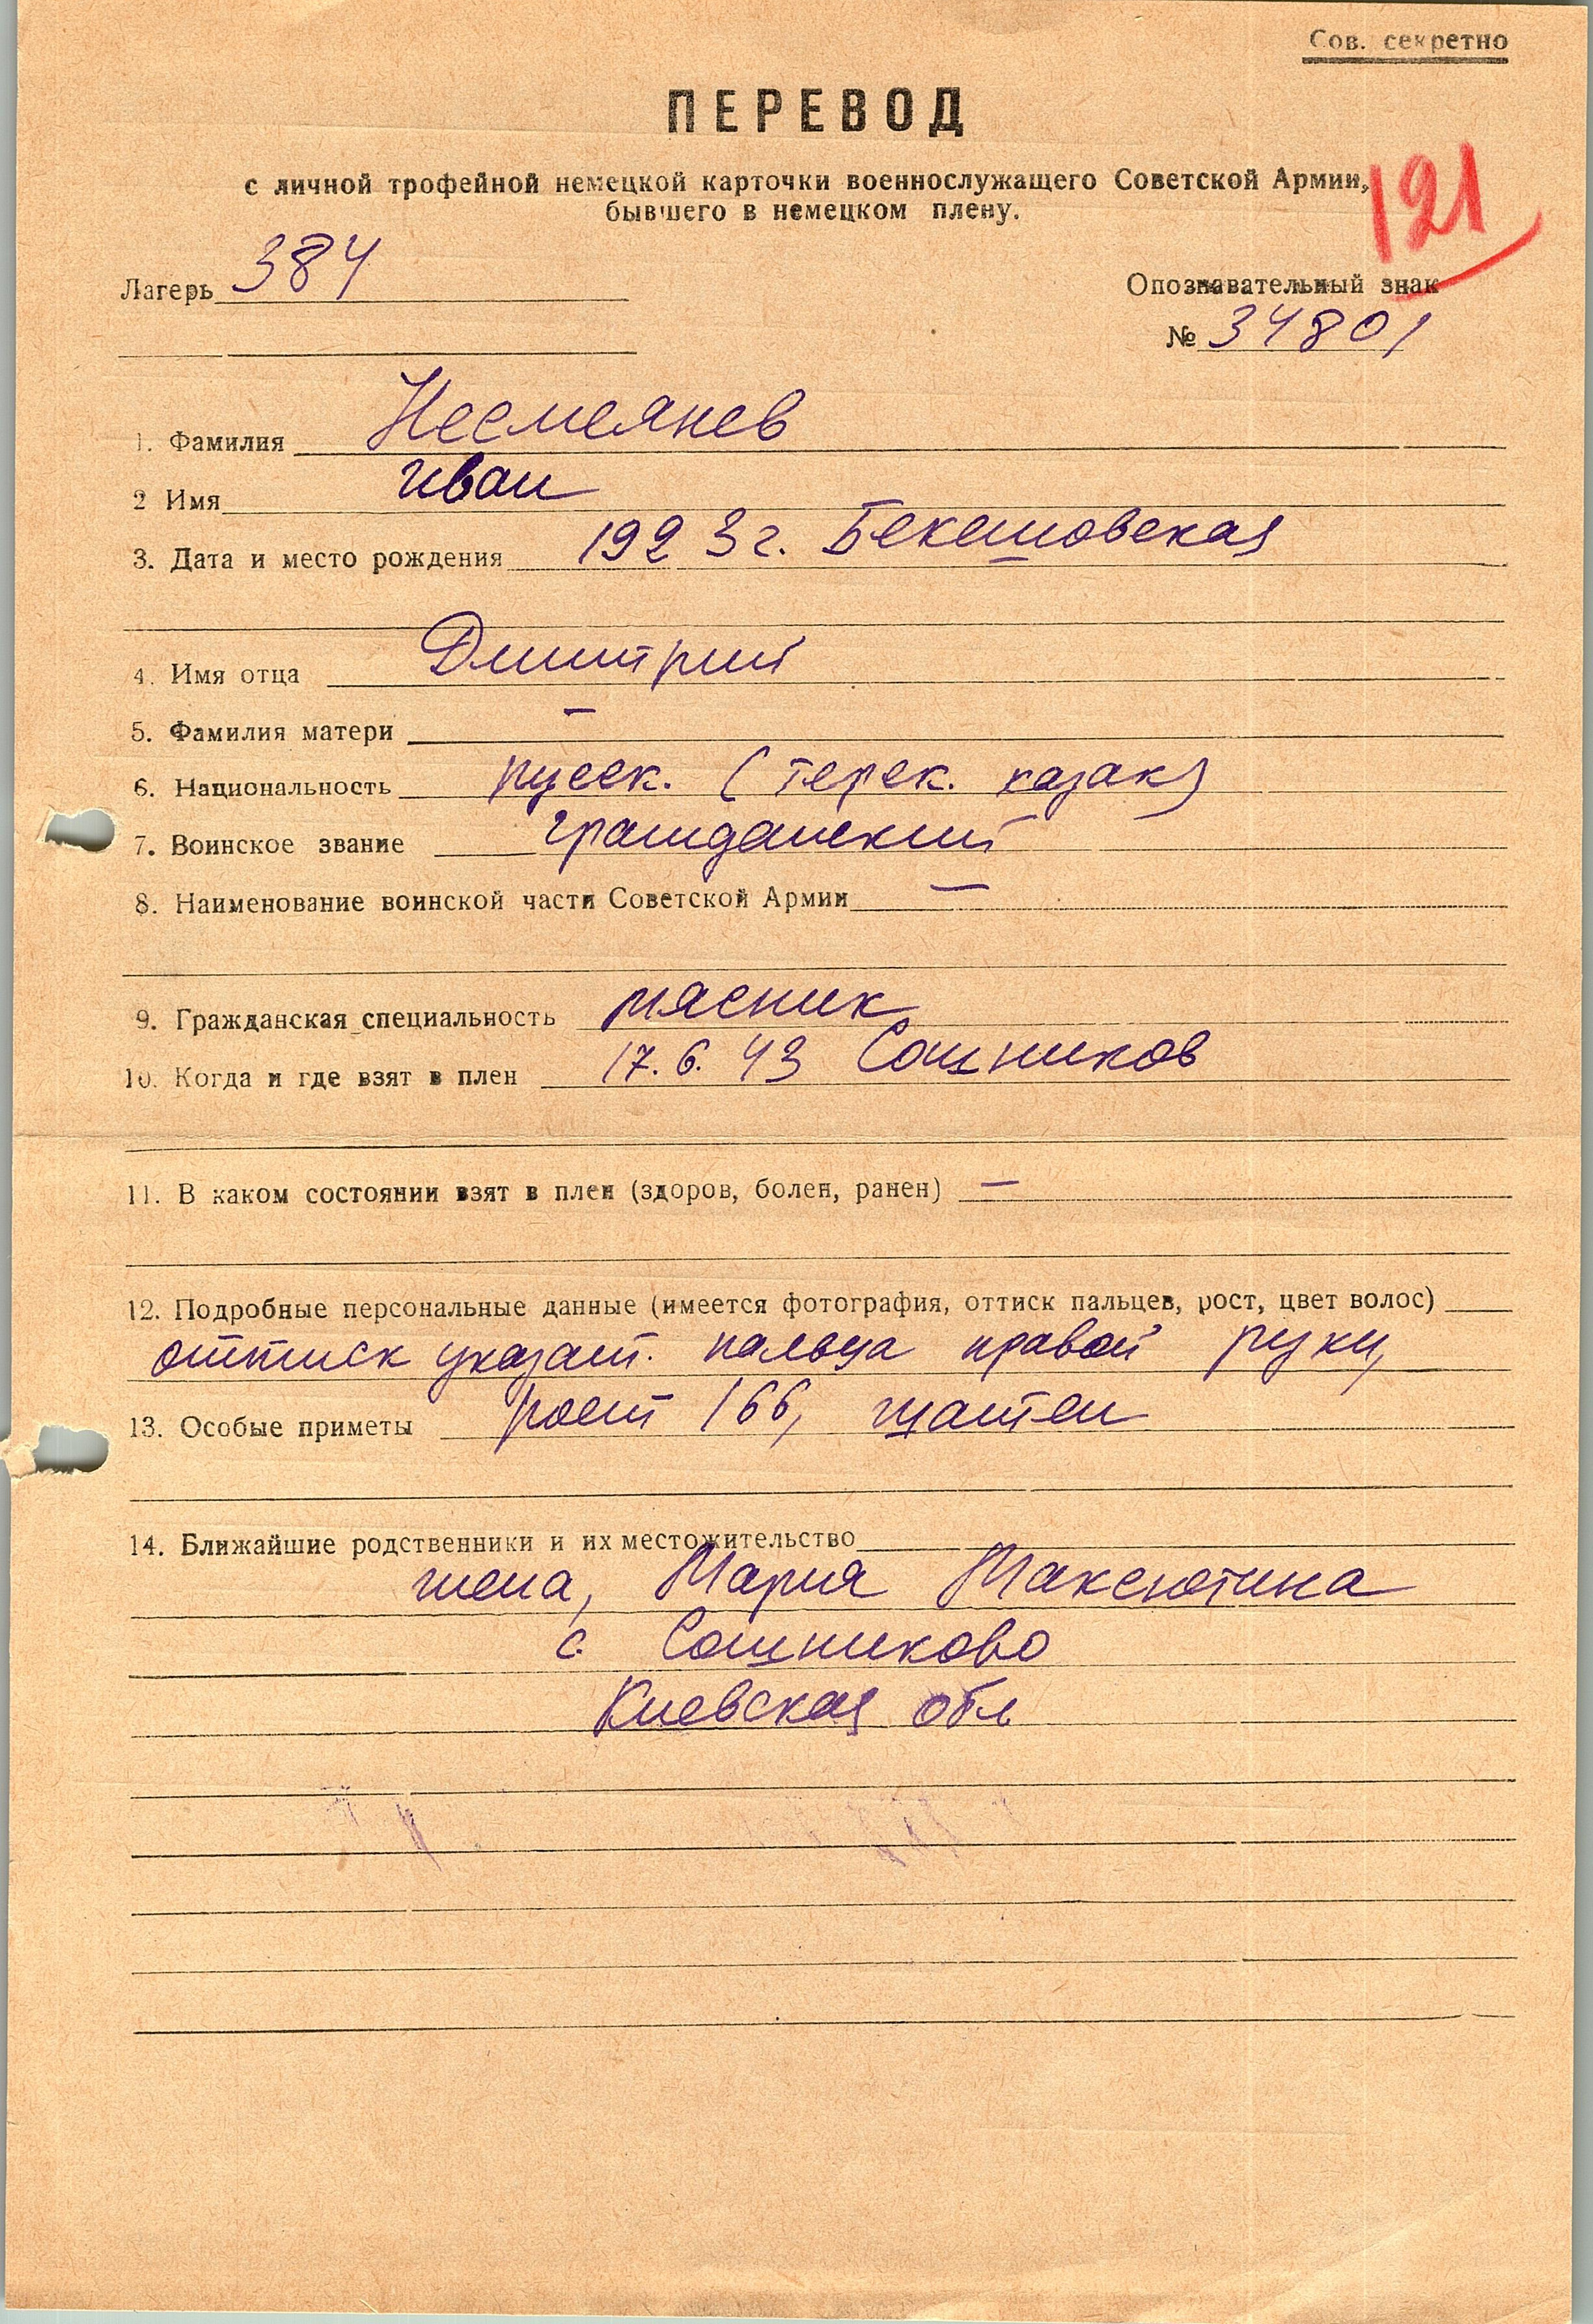 Сов. секретно
ПЕРЕВОД
с личной трофейной немецкой карточки военнослужащего Советской Армии,
бывшего в немецком плену.
121
Лагерь 384
Опознавательный знак
№ 34801
1. Фамилия Несмеянев
2 Имя Иван
3. Дата и место рождения 1923 г. Бекешовская
4. Имя отца Дмитрий
5. Фамилия матери —
6. Национальность русск. (терск. казак)
7. Воинское звание гражданский
8. Наименование воинской части Советской Армии —
9. Гражданская специальность мясник
10. Когда и где взят в плен 17.6.43 Сошников
11. В каком состоянии взят в плен (здоров, болен, ранен) —
12. Подробные персональные данные (имеется фотография, оттиск пальцев, рост, цвет волос)
оттиск указат. пальца правой руки,
13. Особые приметы рост 166, шатен
14. Ближайшие родственники и их местожительство
жена, Мария Максютина
с. Сошниково
Киевская обл